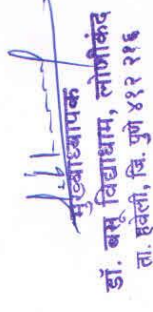 मुख्याध्यापक
डॉ. बसू विद्याधाम, लोणीकंद
ता. हवेली, जि. पुणे ४१२ २१६